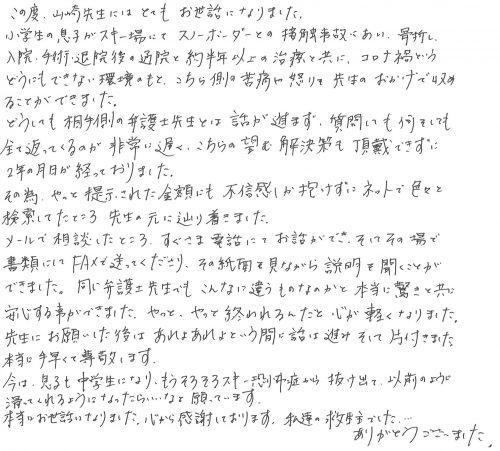 この度、山﨑先生にはとてもお世話になりました。
小学生の息子がスキー場にてスノーボーダーとの接触事故にあい、骨折し、
入院・手術・退院後の通院と約半年以上の治療と共に、コロナ禍という
どうにもできない環境のもと、こちら側の苦痛や怒りを先生のおかげで収め
ることができました。
どうしても相手側の弁護士先生とは話が進まず、質問しても何をしても
全て返ってくるのが非常に遅く、こちらの望む解決策も頂戴できずに
2年の月日が経っておりました。
その為、やっと提示された金額にも不信感しか抱けずにネットで色々と
検索してたところ先生の元に辿り着きました。
メールで相談したところ、すぐさま電話にてお話ができ、そしてその場で
書類にしてFAXで送ってくださり、その紙面を見ながら説明を聞くことが
できました。同じ弁護士先生でもこんなに違うものなのかと本当に驚きと共に
安心する事ができました。やっと、やっと終われるんだと心が軽くなりました。
先生にお願いした後はあれよあれよという間に話は進みそして片付きました
本当に手早くて尊敬します。
今は、息子も中学生になり、もうそろそろスキー恐怖症から抜け出て、以前のように
滑ってくれるようになったらいいなと願っています。
本当にお世話になりました。心から感謝しております。私達の救世主でした…
ありがとうございました。